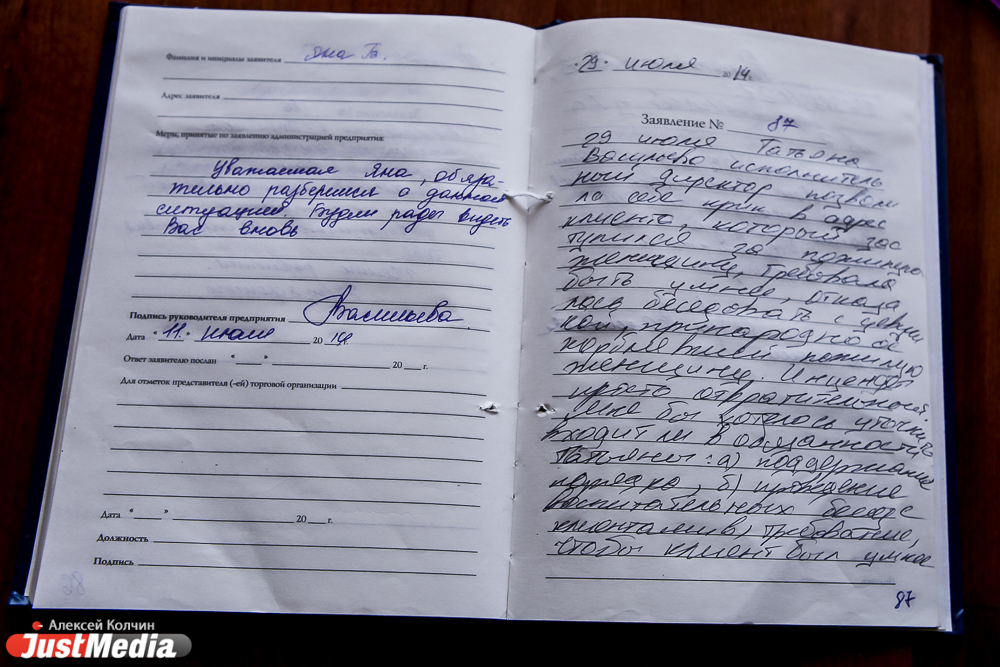 Фамилия и инициалы заявителя Яна Га.
Адрес заявителя
Меры, принятые по заявлению администрацией предприятия:
Уважаемая Яна, обяза-
тельно разберемся о данной
ситуацией. Будем рады видеть
Вас вновь
Подпись руководителя предприятия Васильева
Дата "11." июля 20 14
Ответ заявителю послан "__" 20__ г.
Для отметок представителя (-ей) торговой организации
Дата "__" 20__ г.
Должность
Подпись
86
"29" июля 2014.
Заявление № 87
29 июля Татьяна
Васильева исполнитель
ный директор позволи
ла себе крик в адрес
клиента, который зас
тупился за пожилую
женщину, требовала
быть умнее, отказа
лась беседовать с
принародно о
пожилую
женщину. Инцендент
просто отвратительный
Мне бы хотелось уточнить
входит ли в обязанности
Татьяны: а) поддержание
порядка, б) проведение
воспитательных бесед с
клиентами в) требование,
чтобы клиент был умнее
87
Алексей Колчин
JustMedia